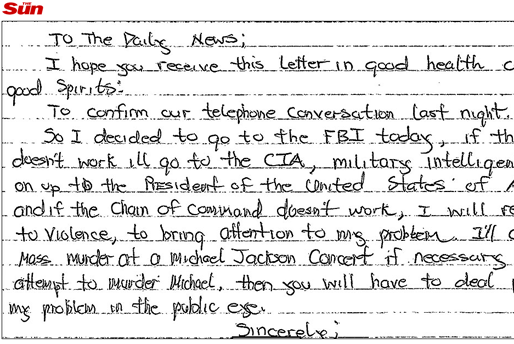 THE Sun
To The Daily News;
I hope you receive this Letter in good health
good Spirits:
To confirm our telephone conversation last night.
So I decided to go to the FBI today, if th
doesn't work ill go to the CIA, military intelligen
on up to the President of the United States of A
and if the Chain of Command doesn't work, I will re
to Violence, to bring attention to my problem. I'll
Mass murder at a Michael Jackson Concert if necessary
attempt to murder Michael, then you will have to deal
my problem in the public eye.
Sincerely;